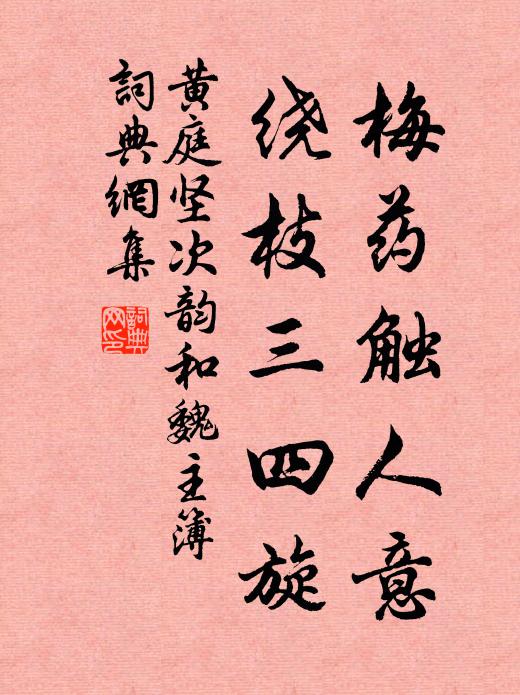 梅药触人意
绕枝三四旋
黄庭坚次韵和魏主簿
詞典網集
詞典网印